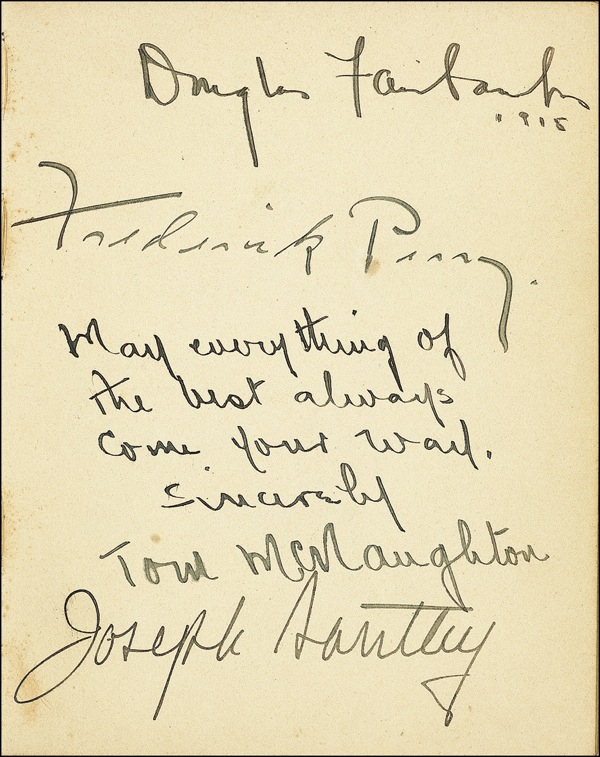 Douglas Fairbanks
1915
Frederick Perry.
May everything of
the best always
come your way.
Sincerely
Tom McNaughton
Joseph Santley